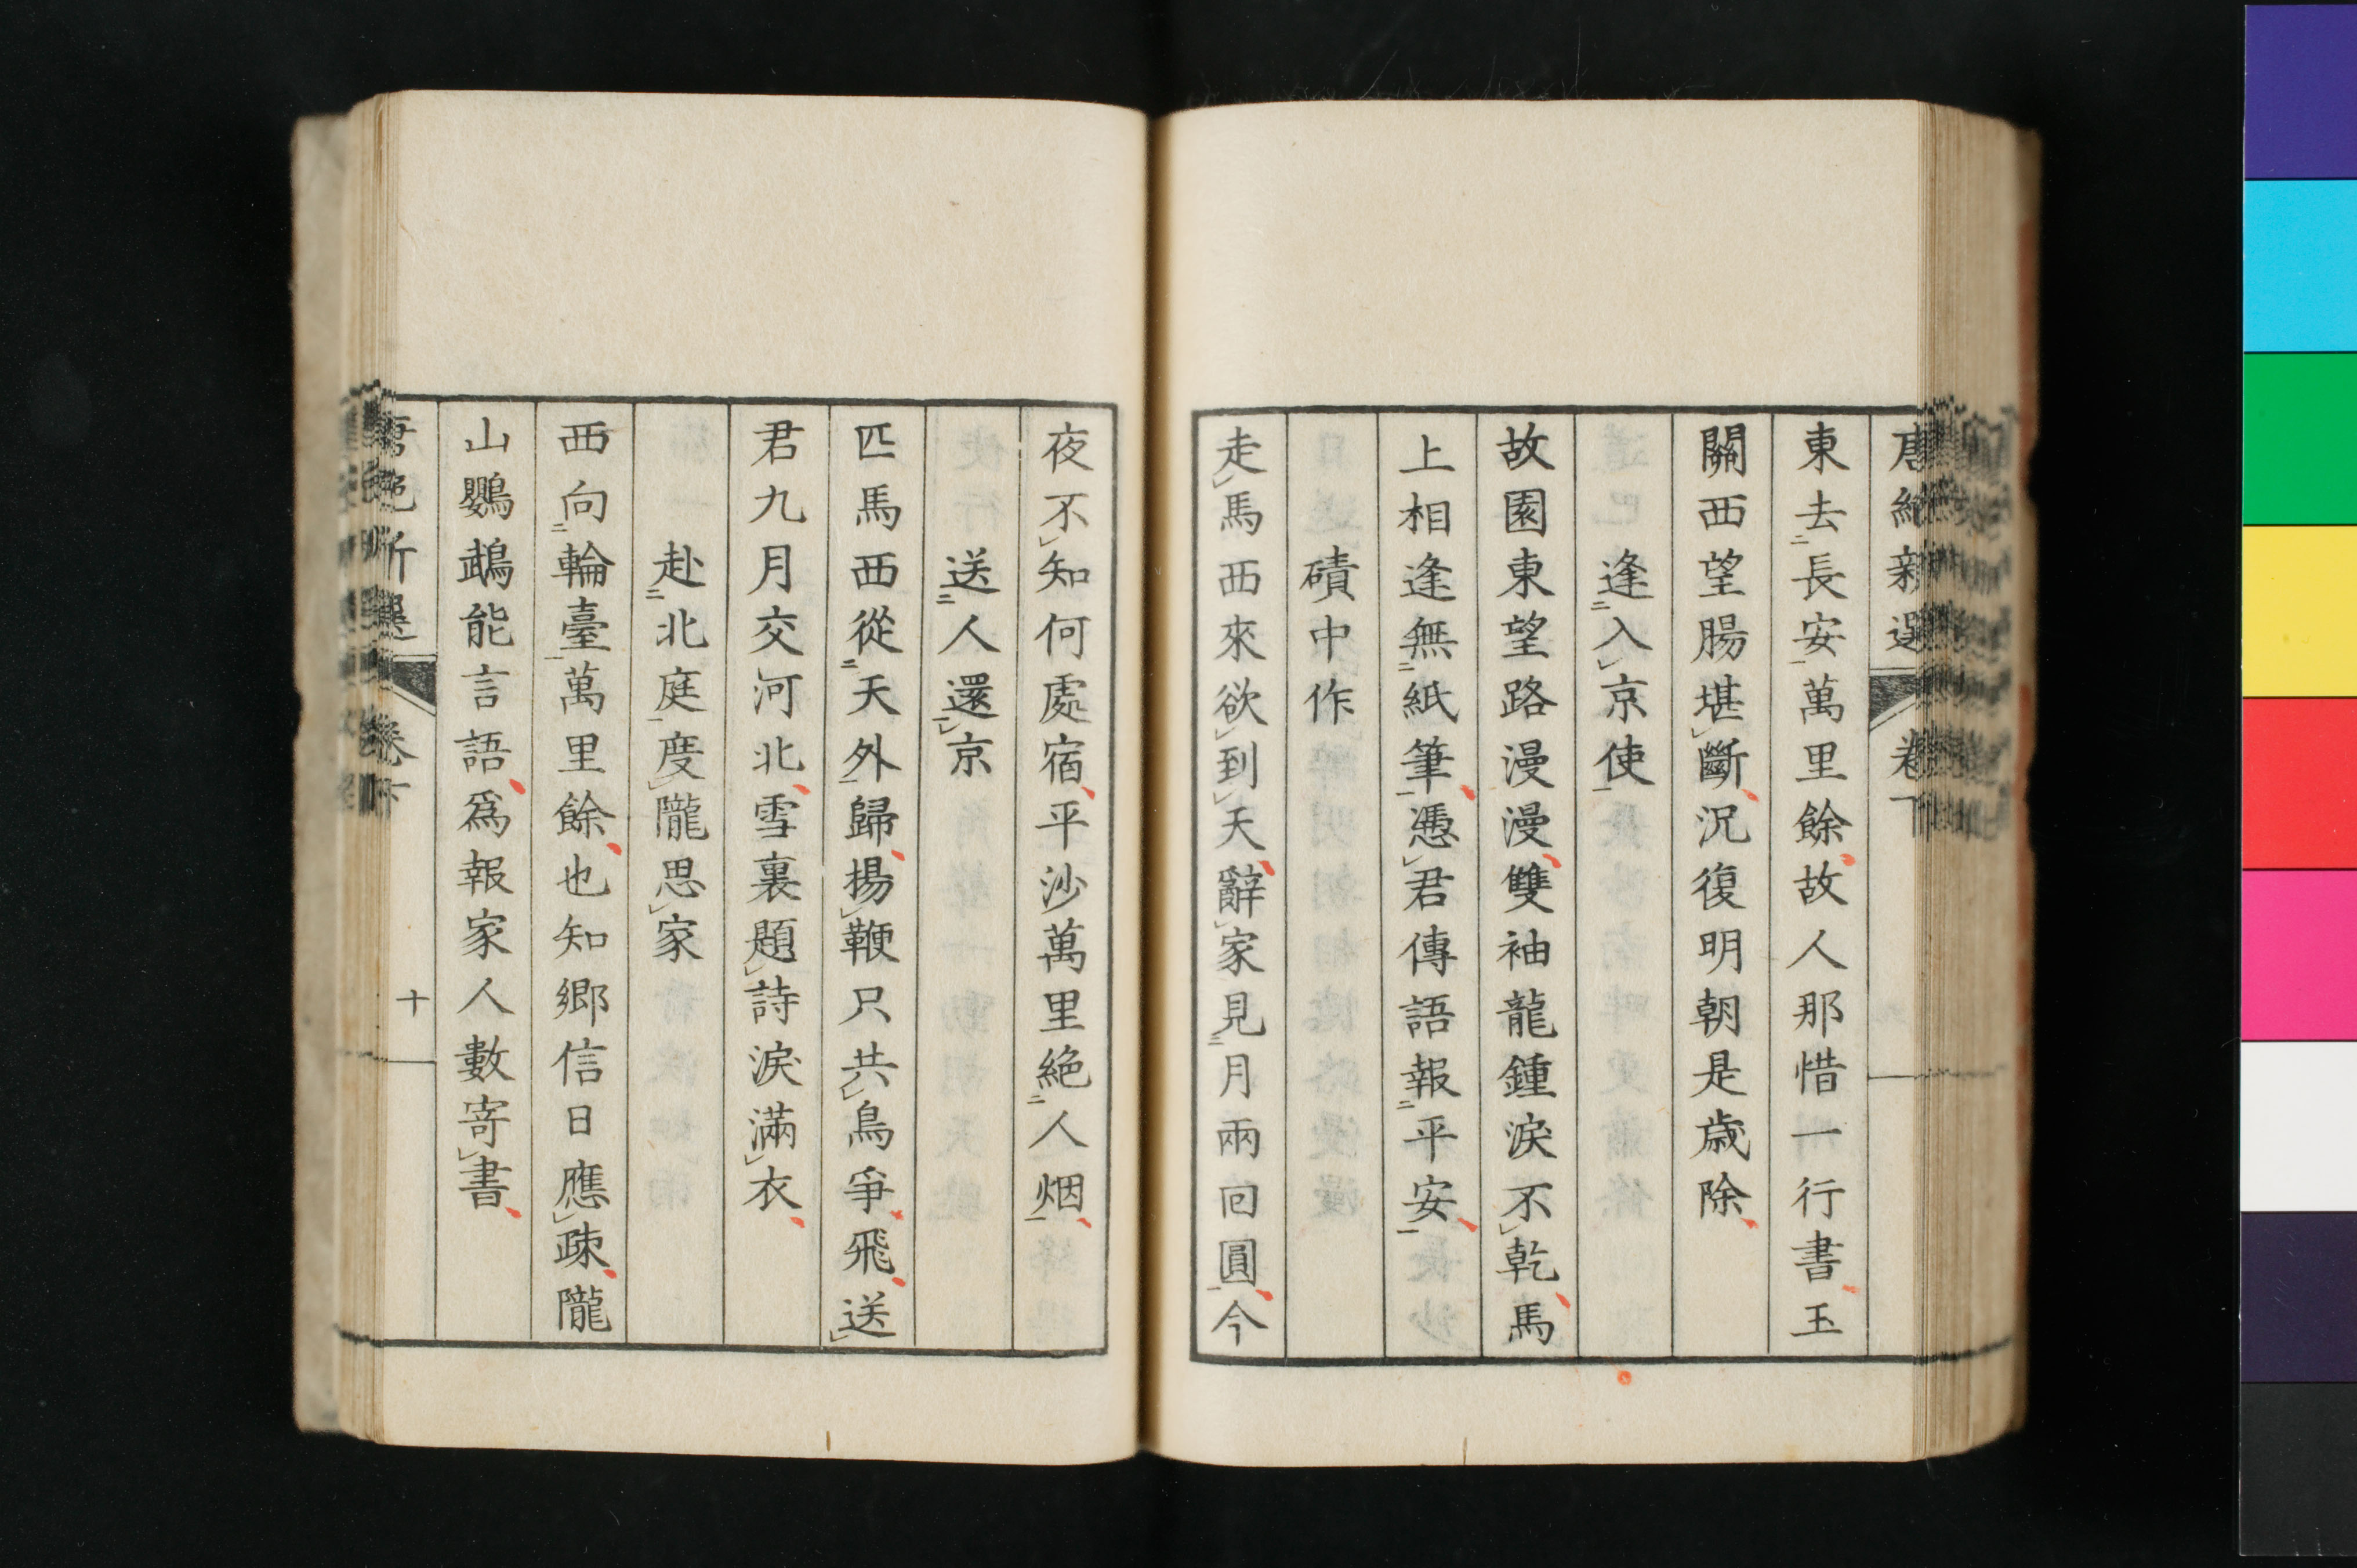 唐絕新選 卷下
東去長安萬里餘故人那惜一行書玉
關西望腸堪斷況復明朝是歲除
逢入京使
故園東望路漫漫雙袖龍鍾淚不乾馬
上相逢無紙筆憑君傳語報平安
磧中作
走馬西來欲到天辭家見月兩回圓今
夜不知何處宿平沙萬里絕人烟
送人還京
匹馬西從天外歸揚鞭只共鳥爭飛送
君九月交河北雪裏題詩淚滿衣
赴北庭度隴思家
西向輪臺萬里餘也知鄉信日應疎隴
山鸚鵡能言語爲報家人數寄書
唐絕新選 卷下 十